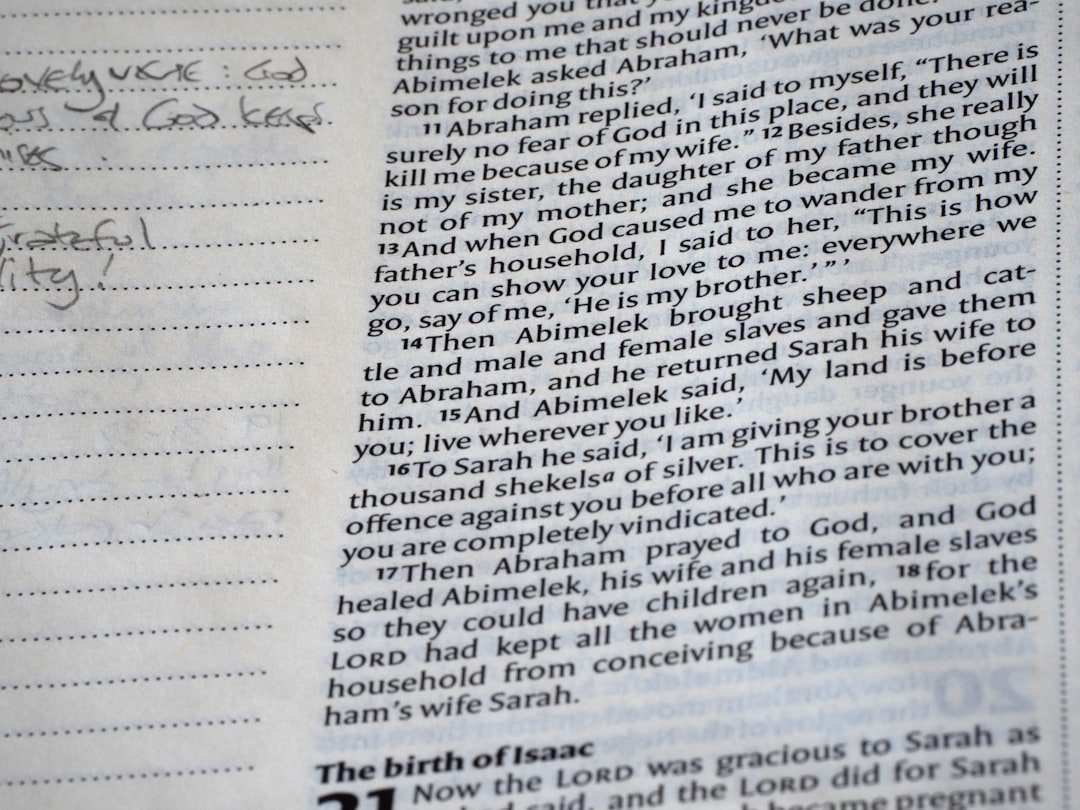 ovely verse : God
ous & God keeps
ises .
Grateful
lity !
wronged you that
guilt upon me and my kingdom
things to me that should never be done.'
Abimelek asked Abraham, 'What was your rea-
son for doing this?'
11 Abraham replied, 'I said to myself, "There is
surely no fear of God in this place, and they will
kill me because of my wife." 12 Besides, she really
is my sister, the daughter of my father though
not of my mother; and she became my wife.
13 And when God caused me to wander from my
father's household, I said to her, "This is how
you can show your love to me: everywhere we
go, say of me, 'He is my brother.'"'
14 Then Abimelek brought sheep and cat-
tle and male and female slaves and gave them
to Abraham, and he returned Sarah his wife to
him. 15 And Abimelek said, 'My land is before
you; live wherever you like.'
16 To Sarah he said, 'I am giving your brother a
thousand shekels a of silver. This is to cover the
offence against you before all who are with you;
you are completely vindicated.'
17 Then Abraham prayed to God, and God
healed Abimelek, his wife and his female slaves
so they could have children again, 18 for the
LORD had kept all the women in Abimelek's
household from conceiving because of Abra-
ham's wife Sarah.
The birth of Isaac
21 Now the LORD was gracious to Sarah as
had said, and the LORD did for Sarah
became pregnant